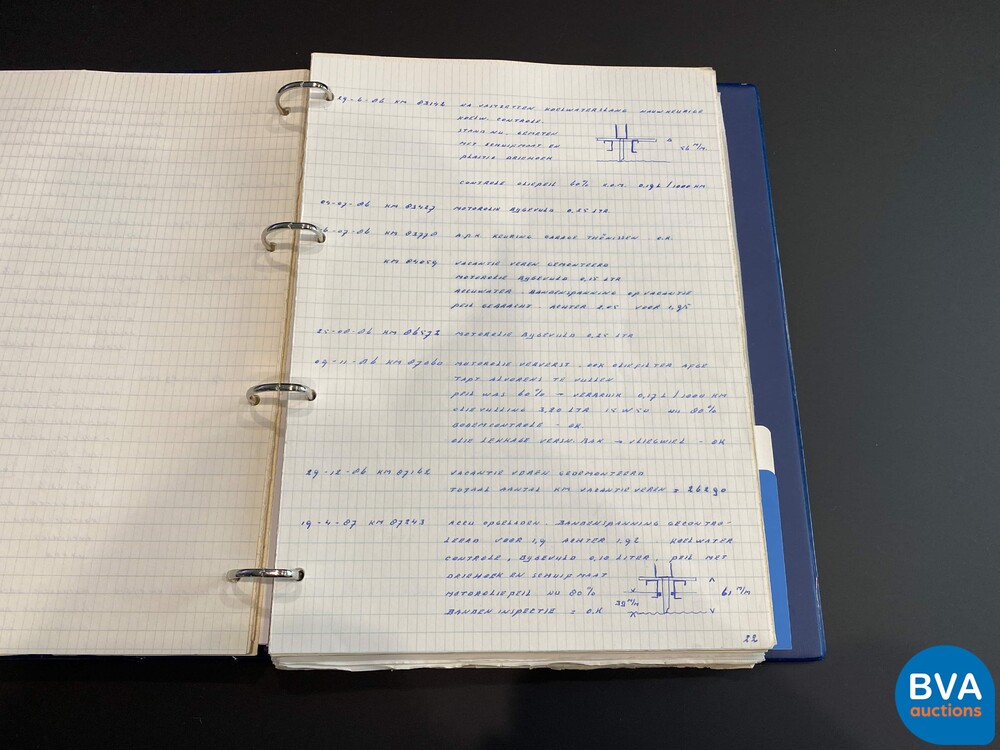 29-6-86 KM 83142 NA VASTZETTEN KOELWATERSLANG NAUWKEURIGE
KOELW. CONTROLE.
STAND NU. GEMETEN
MET SCHUIFMAAT EN
PLASTIC DRIEHOEK
56 M/M
CONTROLE OLIEPEIL 60% 0,19 L/1000 KM
04-07-86 KM 83427 MOTOROLIE BYGEVULD 0,25 LTR
6-07-86 KM 83778 A.P.K KEURING GARAGE THÖNISSEN O.K.
KM 84059 VACANTIE VEREN GEMONTEERD
MOTOROLIE BYGEVULD 0,15 LTR
ACCUWATER. BANDENSPANNING OP VACANTIE
PEIL GEBRACHT ACHTER 2,05 VOOR 1,95
25-08-86 KM 86572 MOTOROLIE BYGEVULD 0,25 LTR
09-11-86 KM 87060 MOTOROLIE VERVERST. OOK OLIEFILTER AFGE
TAPT ALVORENS TE VULLEN
PEIL WAS 60% → VERBRUIK 0,17 L/1000 KM
OLIEVULLING 3,20 LTR 15W50 NU 80%
BODEMCONTROLE - OK.
OLIE LEKKAGE VERSN. BAK → VLIEGWIEL - OK
29-12-86 KM 87162 VACANTIE VEREN GEDEMONTEERD
TOTAAL AANTAL KM VACANTIEVEREN = 26290
19-4-87 KM 87243 ACCU OPGELADEN. BANDENSPANNING GECONTRO-
LEERD VOOR 1,9 ACHTER 1,92. KOELWATER
CONTROLE, BYGEVULD 0,10 LITER, PEIL MET
DRIEHOEK EN SCHUIFMAAT
MOTOROLIEPEIL NU 80%
61 M/M
38 M/M
BANDEN INSPECTIE = O.K
22
BVA
auctions